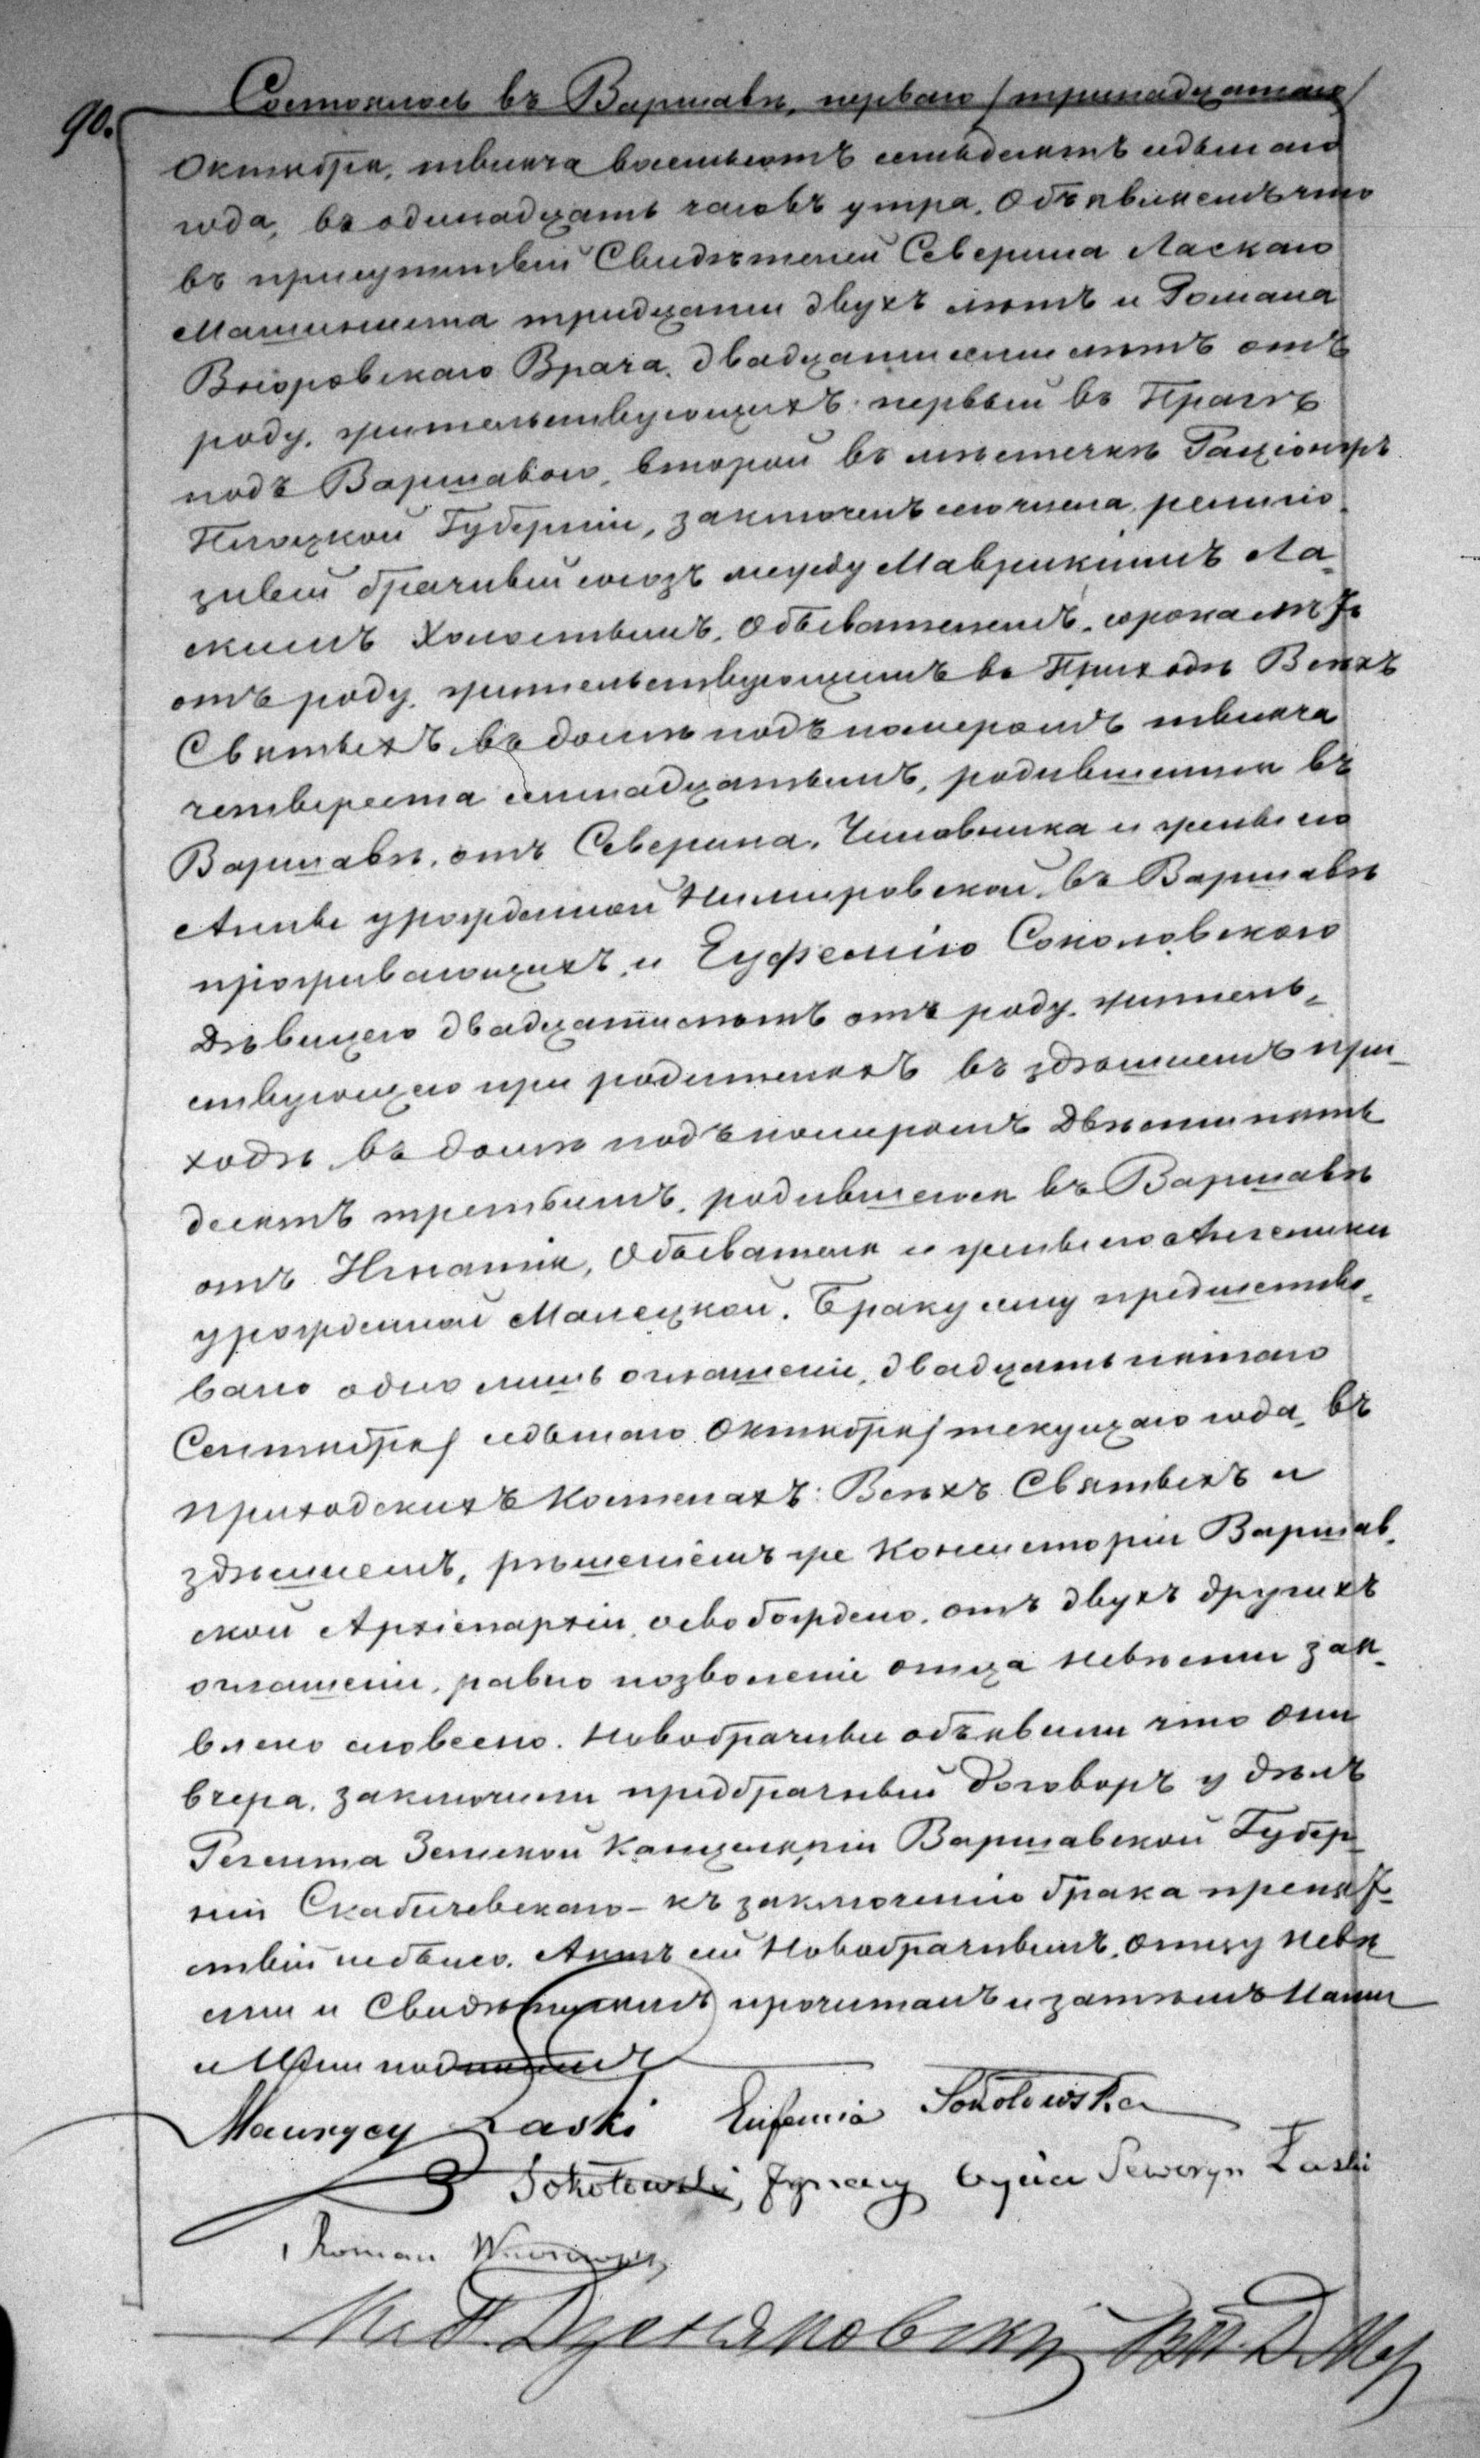 90.
Состоялось въ Варшавѣ, перваго /тринадцатаго/
Октября, тысяча восемьсотъ семьдесятъ седьмаго
года, въ одинадцать часовъ утра. Объявляемъ что
въ присутствіи Свидѣтелей Северина Ласкаго
Машиниста тридцати двухъ лѣтъ и Романа
Врача, двадцати семи лѣтъ отъ
роду, жительствующихъ: первый въ Прагѣ
подъ Варшавою, второй въ мѣстечкѣ Раціонжѣ
Плоцкой Губерніи, заключенъ сего числа, религіо-
зный брачный союзъ между Маврикіимъ Ла-
скимъ Холостымъ, Обывателемъ, сорока лѣтъ
отъ роду, жительствующимъ въ Приходѣ Всѣхъ
Святыхъ, въ домѣ подъ номеромъ тысяча
четыреста семнадцатымъ, родившемся въ
Варшавѣ, отъ Северина, Чиновника и жены его
Анны урожденной Нимировской, въ Варшавѣ
проживающихъ, и Еуфемію Соколовскою
Дѣвицею двадцати лѣтъ отъ роду, житель-
ствующею при родителяхъ въ здѣшнемъ при-
ходѣ, въ домѣ подъ номеромъ Двѣсти пять
десятъ третьимъ, родившеюся въ Варшавѣ
отъ Игнатія, Обывателя и жены его Ангелики
урожденной Малецкой. Браку сему предшество-
вало одно лишь оглашеніе, двадцать пятаго
Сентября /седьмаго Октября/ текущаго года, въ
приходскихъ Костелахъ: Всѣхъ Святыхъ и
здѣшнемъ, рѣшеніемъ же Консисторіи Варшав-
ской Архіепархіи, освобождено, отъ двухъ другихъ
оглашеніи, равно позволеніе отца Невѣсты зая-
влено словесно. Новобрачные объявили что они
вчера, заключили предбрачный Договоръ у дѣлъ
Регента Земской Канцеляріи Варшавской Губер-
ніи Скабичевскаго – къ заключенію брака препят-
ствій небыло. Актъ сей Новобрачнымъ, Отцу Невѣ
сты и Свидѣтелямъ прочитанъ и затѣмъ Нами
и Ими подписанъ
Maurycy Laski Eufemia Sokołowska
Sokołowski, Ignacy Ojciec Seweryn Łaski
Roman